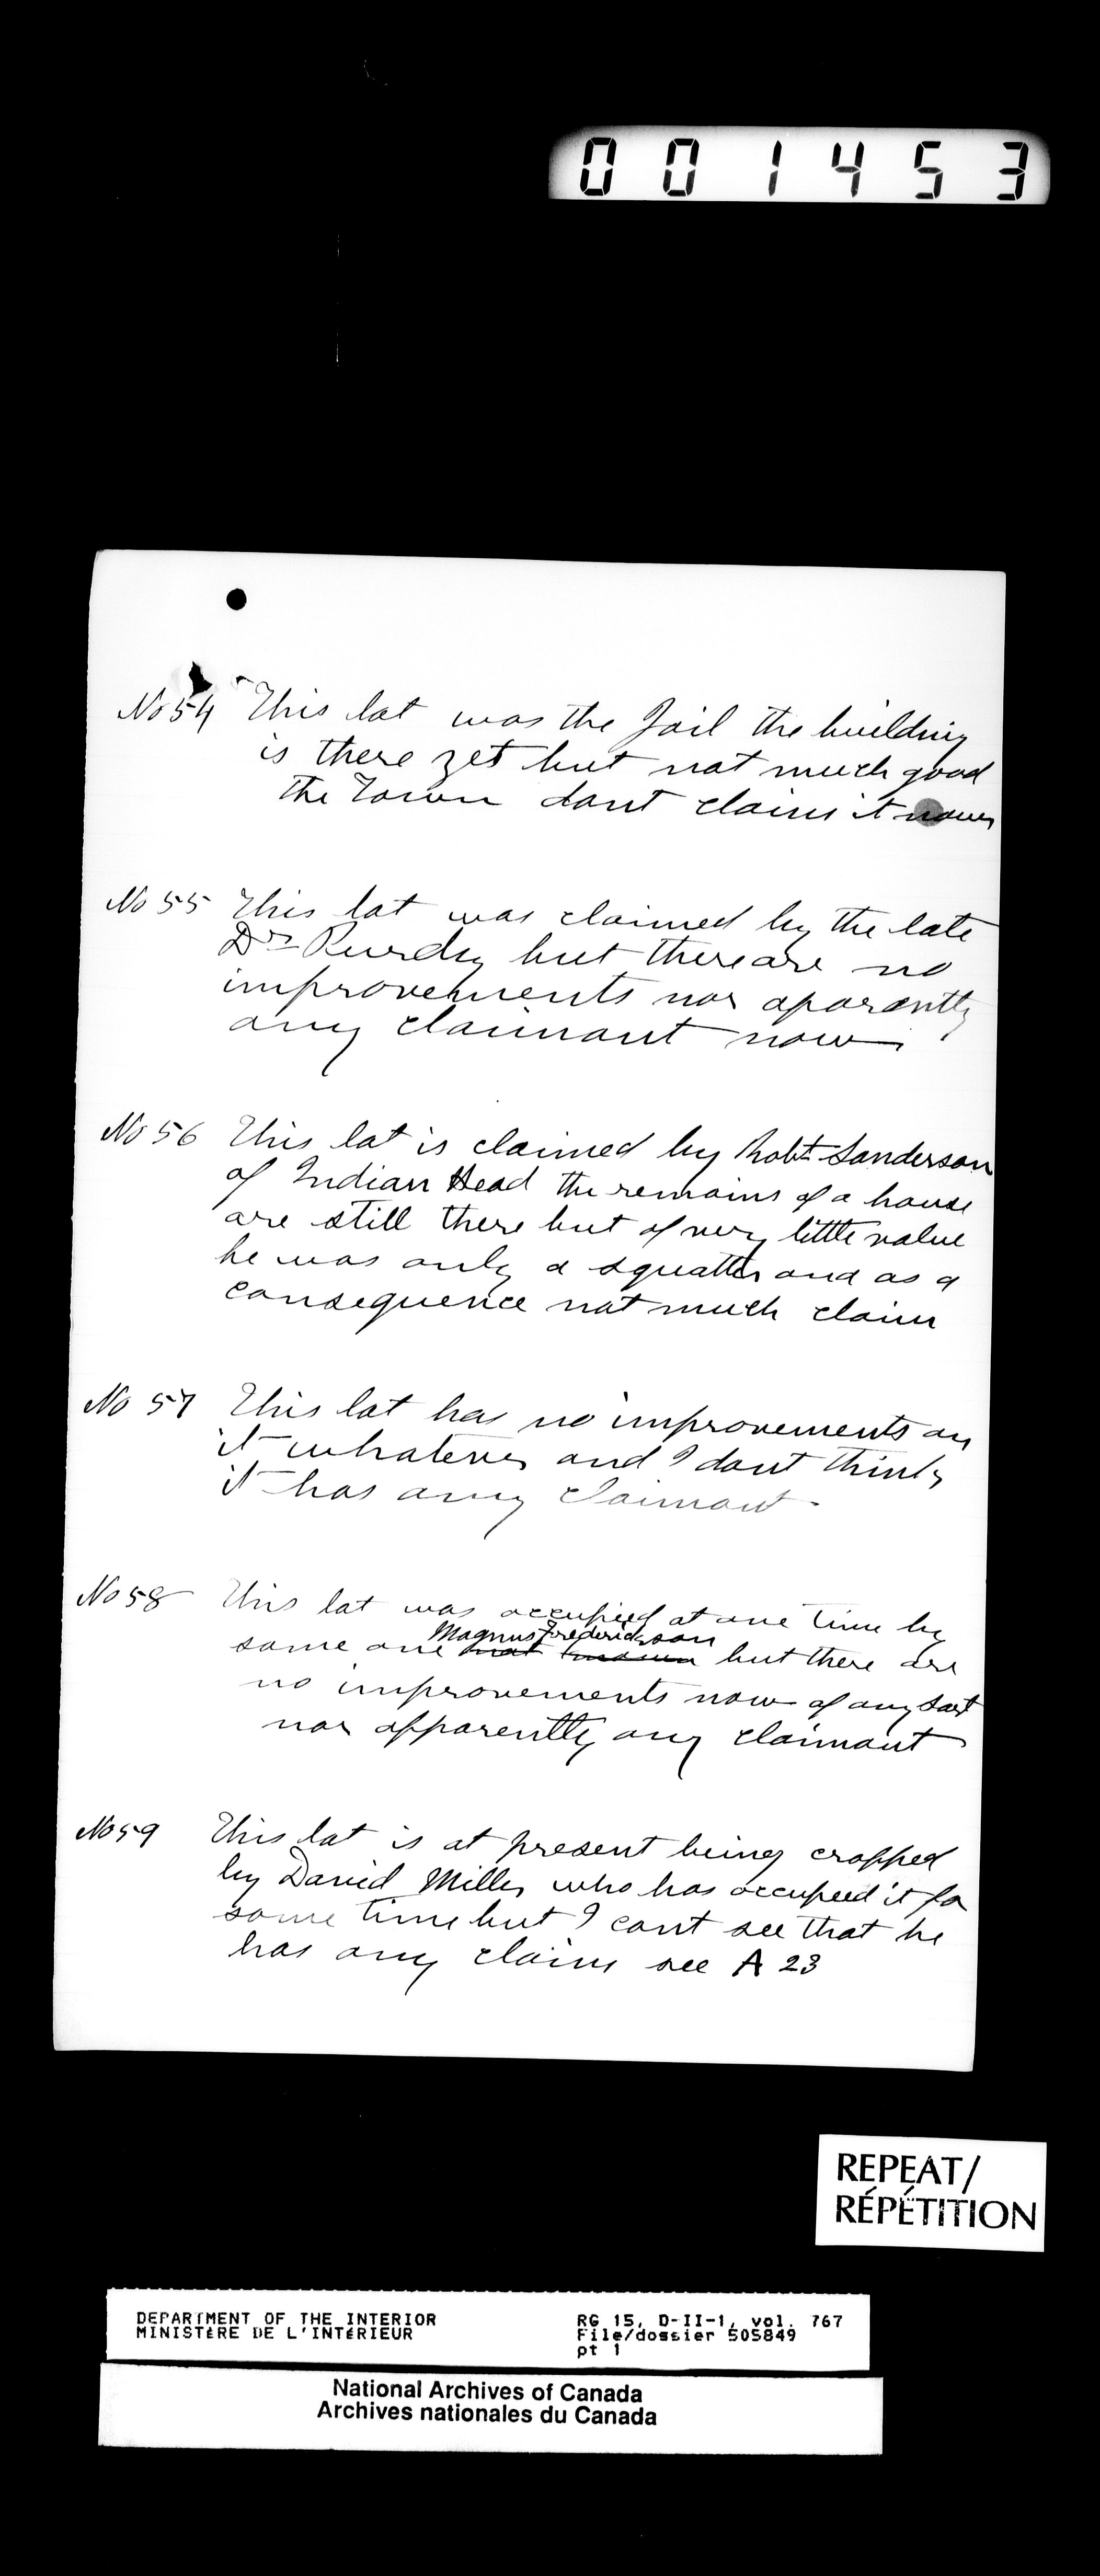 001453
No 54 This lot was the Jail the building
is there yet but not much good
the Town dont claim it now
No 55 This lot was claimed by the late
Dr Purdy but there are no
improvements nor aparently
any claimant now.
No 56 This lot is claimed by Robt Sanderson
of Indian Head the remains of a house
are still there but of very little value
he was only a squatter and as a
consequence not much claim
No 57 This lot has no improvements on
it whatever and I dont think
it has any claimant.
No 58 This lot was occupied at one time by
Magnus Frederickson
some one not known but there are
no improvements now of any sort
nor apparently any claimant
No 59 This lot is at present being cropped
by David Miller who has occupied it for
some time but I cant see that he
has any claim see A 23
REPEAT/
RÉPÉTITION
DEPARTMENT OF THE INTERIOR RG 15, D-II-1, vol. 767
MINISTÈRE DE L'INTÉRIEUR File/dossier 505849
pt 1
National Archives of Canada
Archives nationales du Canada